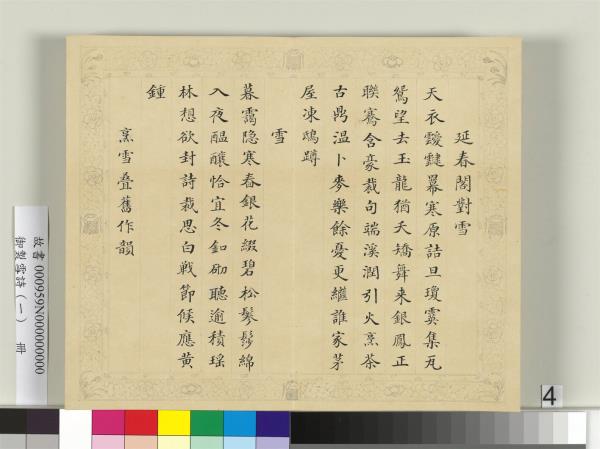 延春閣對雪
天衣靉靆羃寒原詰旦瓊霙集瓦
鴛望去玉龍猶夭矯舞来銀鳳正
聨騫含豪裁句端溪潤引火烹茶
古鼎温卜麥樂餘憂更繼誰家茅
屋凍鴟蹲
雪
暮靄隐寒春銀花綴碧松鬖髿綿
入夜醖釀恰宜冬釦砌聽逾積瑶
林想欲封詩裁思白戰節候應黄
鍾
烹雪叠舊作韻
故書 000959N000000000
御製雪詩（一） 冊
4